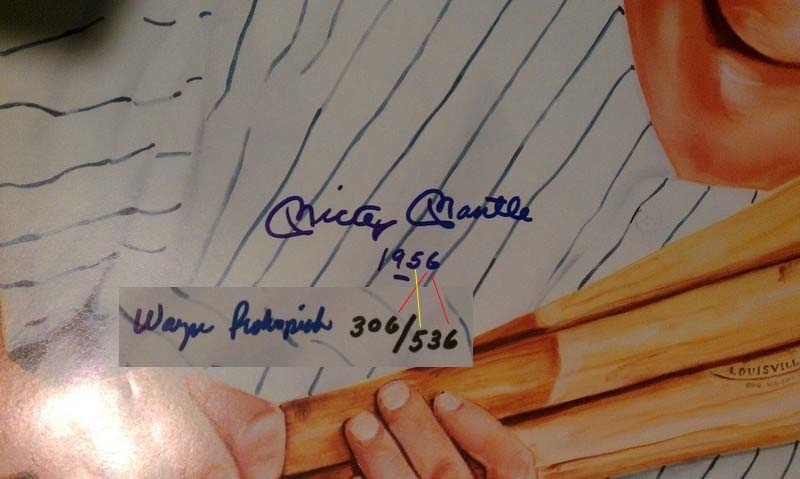 Mickey Mantle
1956
Wayne 306/536
LOUISVILL